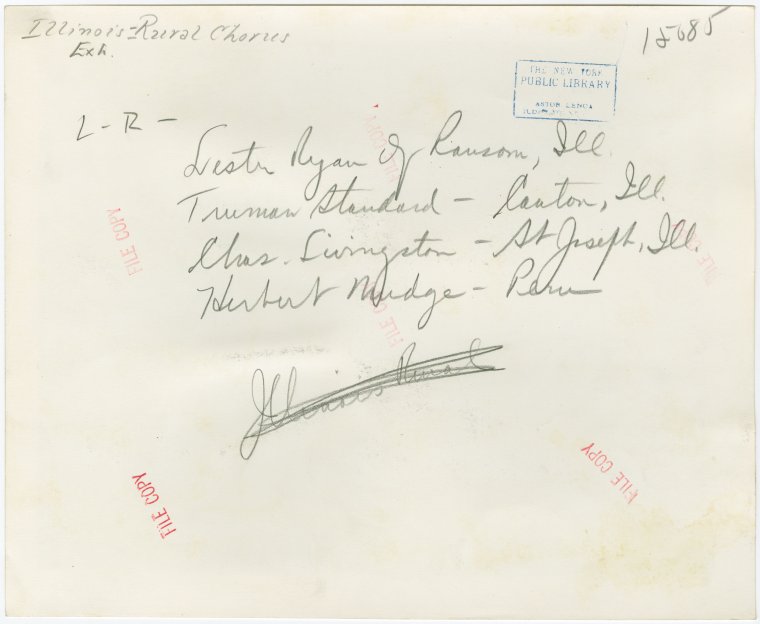 Illinois-Rural Chorus
Exh.
15085
THE NEW YORK
PUBLIC LIBRARY
ASTOR LENOX
L-R-
Lester Ryan of Ransom, Ill.
Truman Standard - Canton, Ill.
Chas. Livingston - St Joseph, Ill.
Herbert Mudge - Peru
Illinois Rural
FILE COPY
FILE COPY
FILE COPY
FILE COPY
FILE COPY
FILE COPY